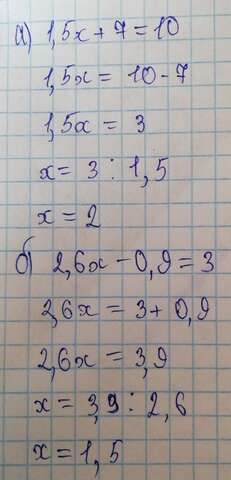 а) 1,5x + 7 = 10
1,5x = 10 - 7
1,5x = 3
x = 3 : 1,5
x = 2
б) 2,6x - 0,9 = 3
2,6x = 3 + 0,9
2,6x = 3,9
x = 3,9 : 2,6
x = 1,5